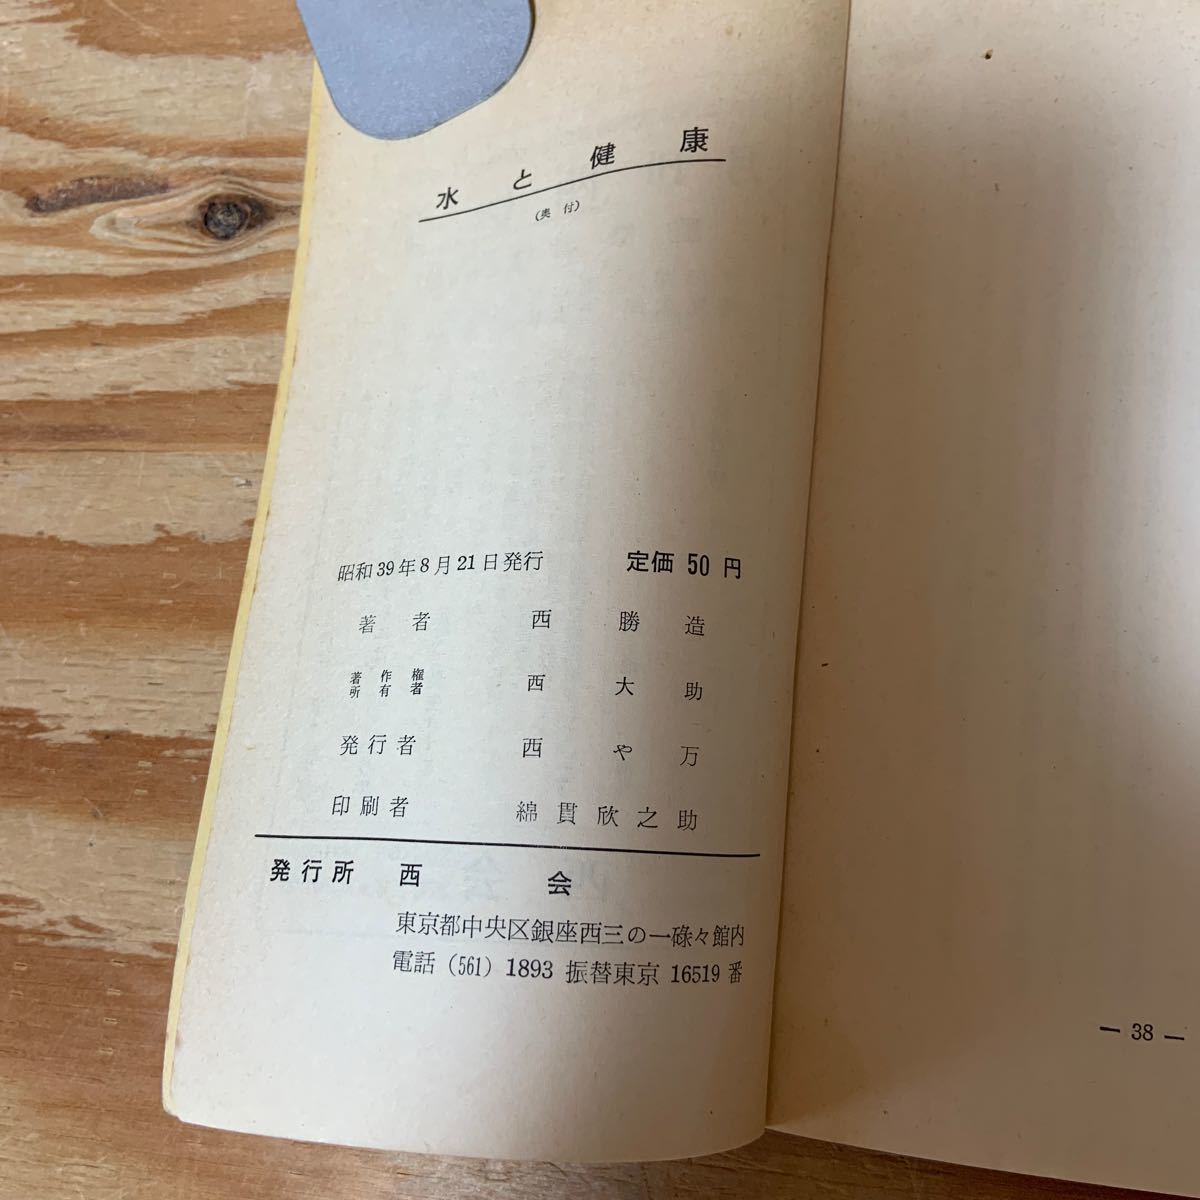 水と健康
(奥付)
昭和39年8月21日発行 定価 50 円
著者 西勝造
著作権所有者 西大助
発行者 西や万
印刷者 綿貫欣之助
発行所 西会
東京都中央区銀座西三の一碌々館内
電話 (561) 1893 振替東京 16519 番
— 38 —